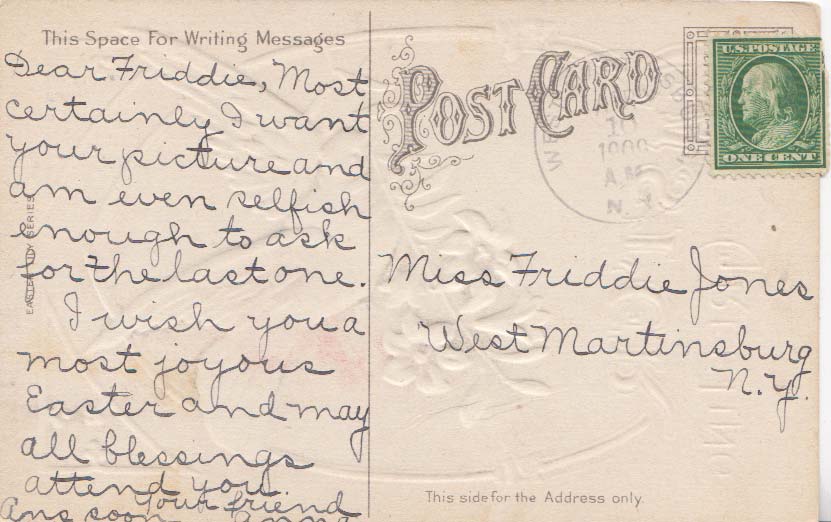 This Space For Writing Messages
Dear Friddie, Most
certainly I want
your picture and
am even selfish
enough to ask
for the last one.
I wish you a
most joyous
Easter and may
all blessings
attend you.
Your friend
Ans soon Anna
EASTER SERIES
POST CARD
10
1909
A.M.
N.Y.
U.S. POSTAGE
ONE CENT
Miss Friddie Jones
West Martinsburg
N.Y.
This side for the Address only.